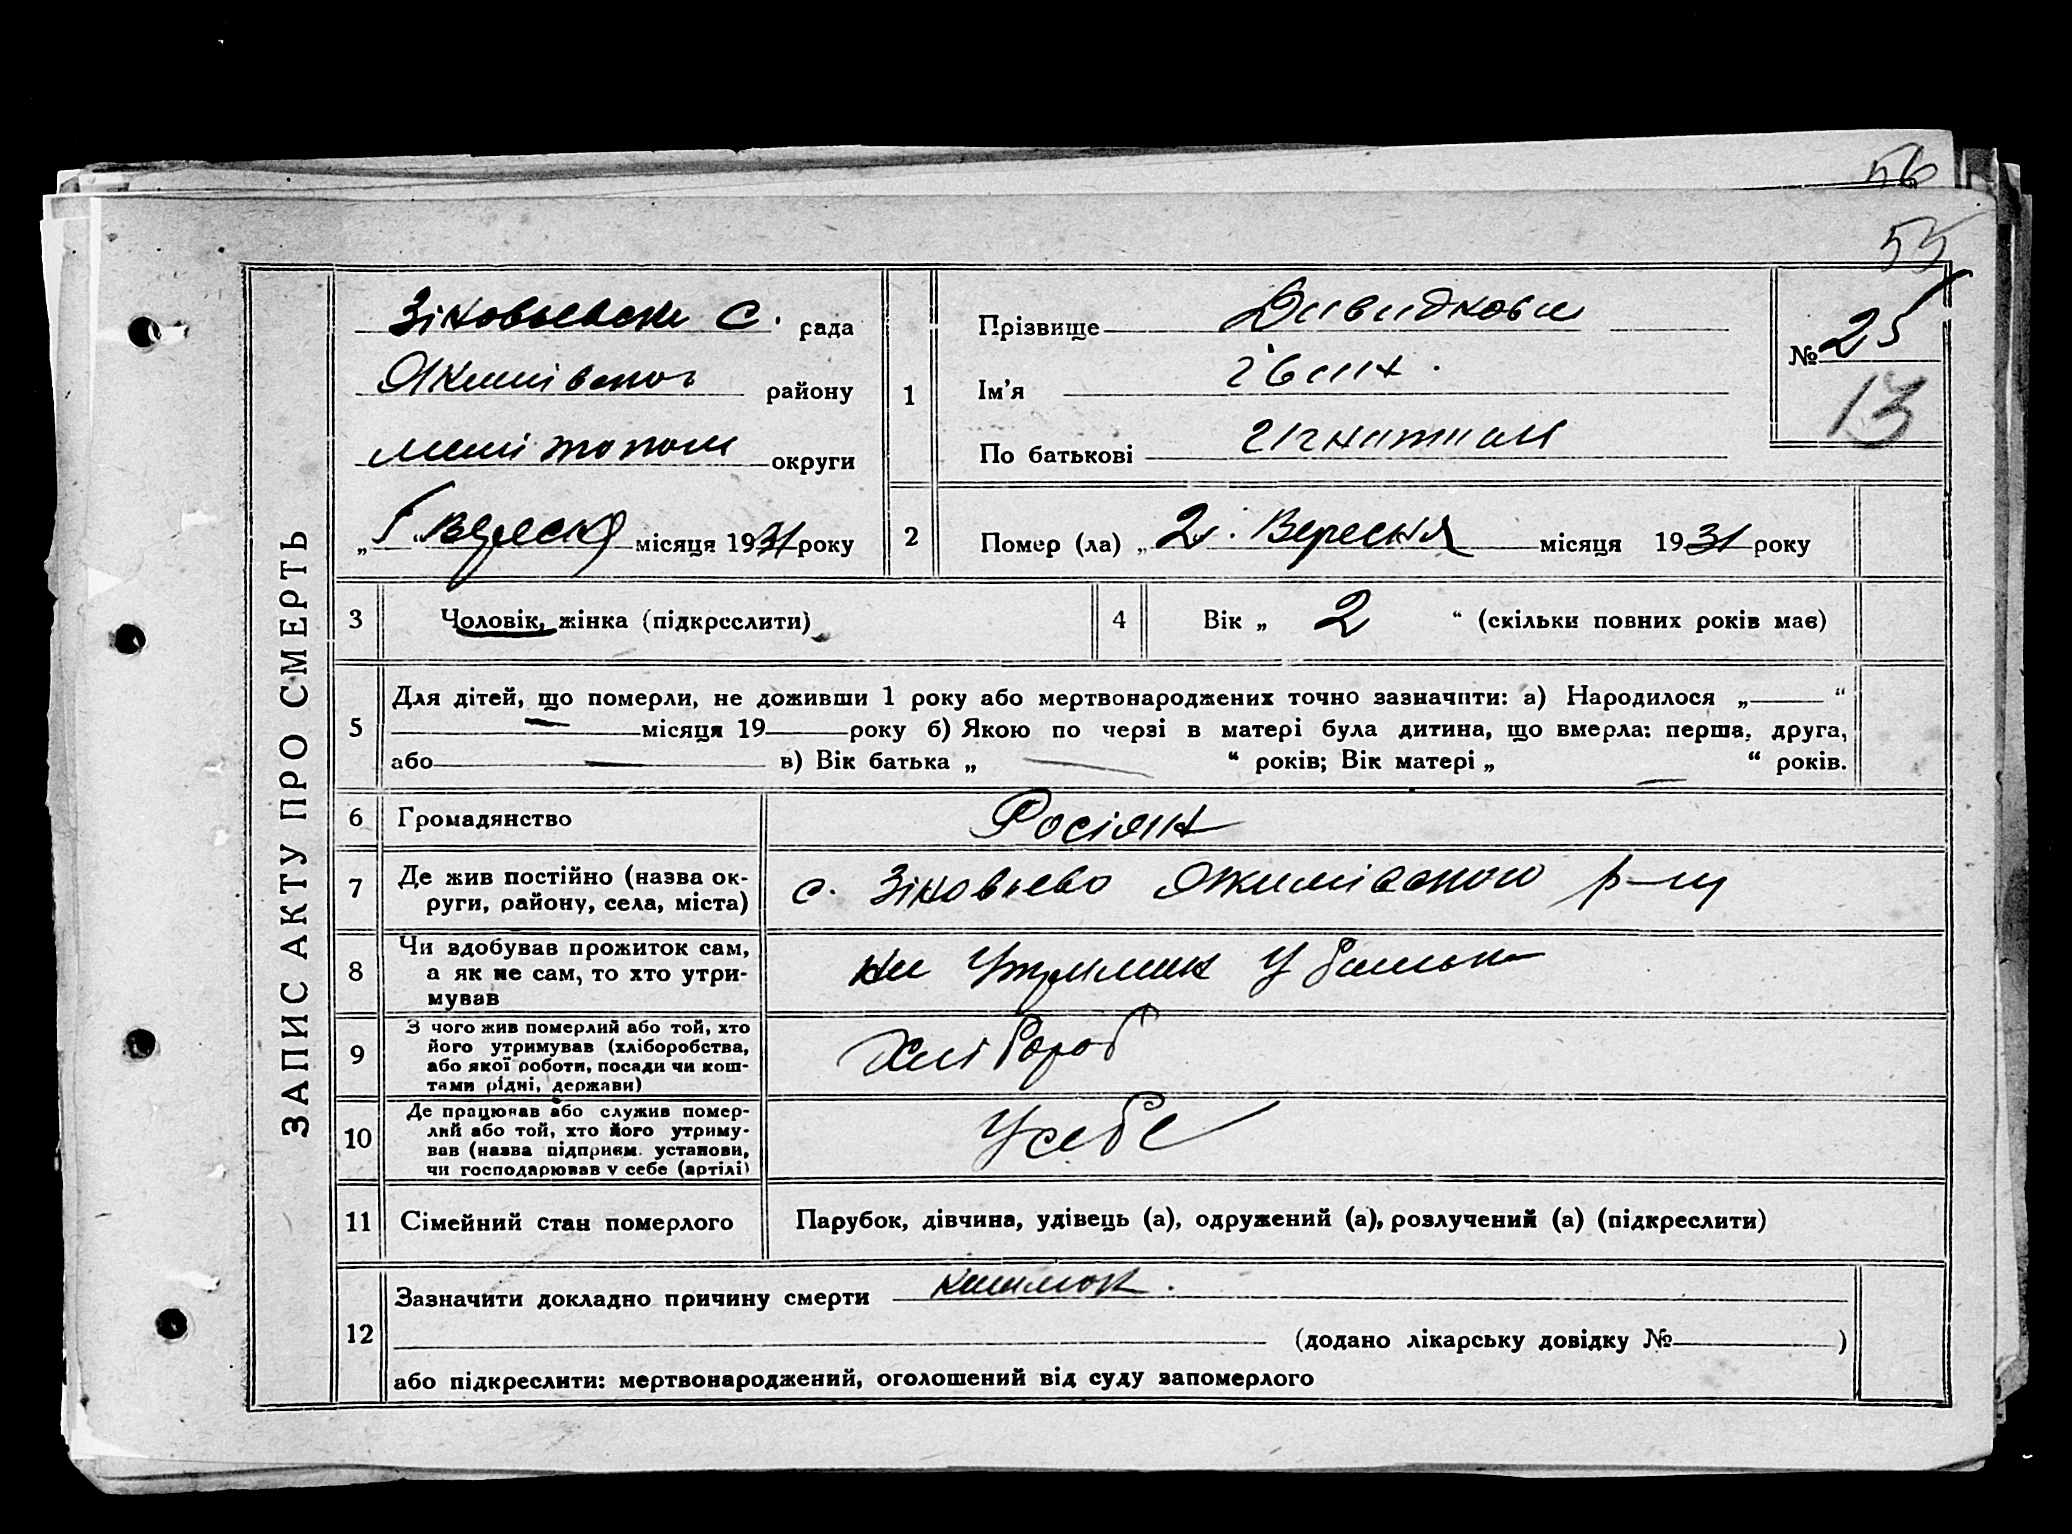 56
55
ЗАПИС АКТУ ПРО СМЕРТЬ
Зіновьевска С. рада
Якимівского району
Мелітополь округи
„ Вересня місяця 1931 року
1
Прізвище Давидкова
Ім'я Іван
По батькові Ігнатиал
№ 25
13
2
Помер (ла) „ 2. Вересня місяця 1931 року
3
Чоловік, жінка (підкреслити)
4
Вік „ 2 “ (скільки повних років має)
5
Для дітей, що померли, не доживши 1 року або мертвонароджених точно зазначити: а) Народилося „ “
місяця 19 року б) Якою по черзі в матері була дитина, що вмерла: перша, друга,
або в) Вік батька „ “ років; Вік матері „ “ років.
6
Громадянство Росіян
7
Де жив постійно (назва ок-
руги, району, села, міста)
с. Зіновьево Якимівского р-ну
8
Чи вдобував прожиток сам,
а як не сам, то хто утри-
мував
на Утриман У батька
9
З чого жив померлий або той, хто
його утримував (хліборобства,
або якої роботи, посади чи кош-
тами рідні, держави)
Хлібороб
10
Де працював або служив помер-
лий або той, хто його утриму-
вав (назва підприєм. установи,
чи господарював у себе (артілі)
У себе
11
Сімейний стан померлого
Парубок, дівчина, удівець (а), одружений (а), розлучений (а) (підкреслити)
12
Зазначити докладно причину смерти
(додано лікарську довідку № )
або підкреслити: мертвонароджений, оголошений від суду запомерлого